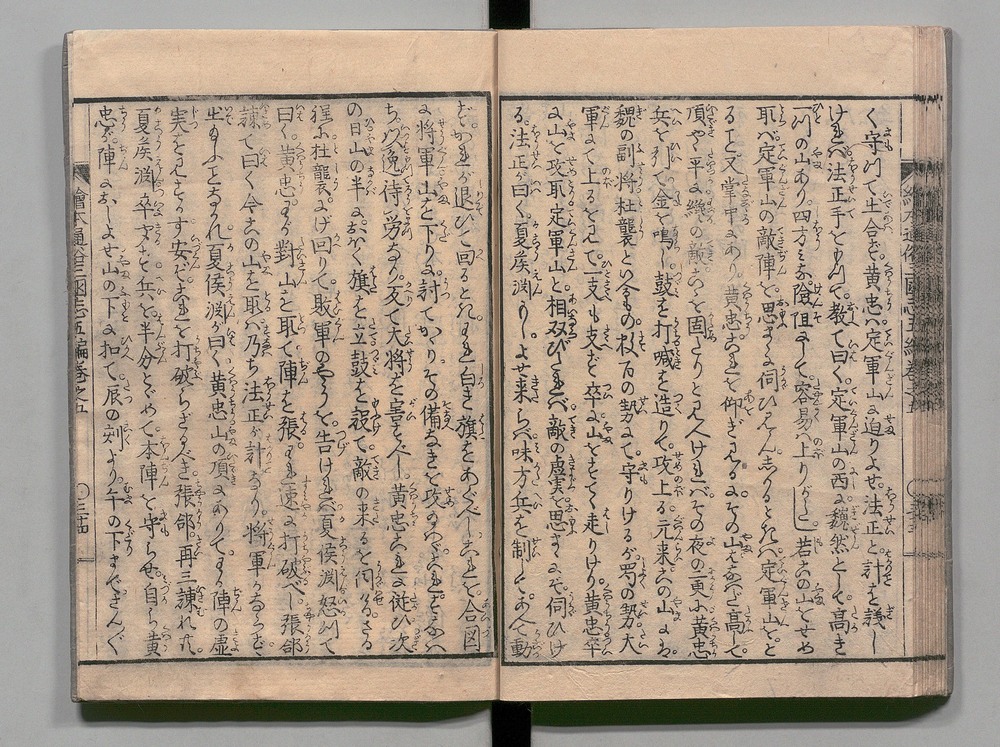 く守りて出合ず黄忠ハ定軍山に迫りよせ法正と計を議し
ければ法正手をもつて教て曰く定軍山の西に巍然として高き
一ツの山あり四方みな嶮阻にして容易ハ上りがたし若この山をせめ
取バ定軍山の敵陣を思まゝに伺ひみんしかるときハ定軍山を
ることハ又掌中にあり黄忠これを仰ぎ見るにその山すこぶる高して
頂やゝ平に纔の敵これを固たりと見へければその夜の更に黄忠
兵を引て金を鳴し鼓を打喊を造りて攻上る元来この山にハ
魏の副将杜襲といふもの数百の勢にて守りけるが蜀の勢大
軍にて上るを見て一支も支ず卒に山をすてゝ走りけり黄忠卒
に山を攻取定軍山と相双びければ敵の虚実を思まゝにぞ伺ひけ
る法正が曰く夏侯淵もしよせ来らバ味方兵を制してあへて動
ずかれが退ひて回るときわれ白き旗をあぐべしこれを合図
に将軍山を下りに討てかゝりその備なきを攻めたまへこれをいふハ
ち以逸待労なり必て大将を害すべし黄忠これに従ひ次
の日山の半におゐて旗を立鼓を設て敵の来るを伺ゐるさる
程に杜襲にげ回りて敗軍のやうを告ければ夏侯淵怒つて
曰く黄忠わが對山を取て陣を張るわれ速に打破べし張郃
諫て曰く今この山を取ハ乃ち法正が計なり将軍かならずを
出たまふことなかれ夏侯淵が曰く黄忠山の頂にありてわが陣の虚
実を見すかす安ぞこれを打破らざるべき張郃再三諫れ共
夏侯淵卒ずきかず兵を半分とゞめて本陣を守らせ自ら黄
忠が陣におしよせ山の下に扣て辰の刻より午の下まできんぐ
繪本通俗三國志五編巻之五
〇三十四